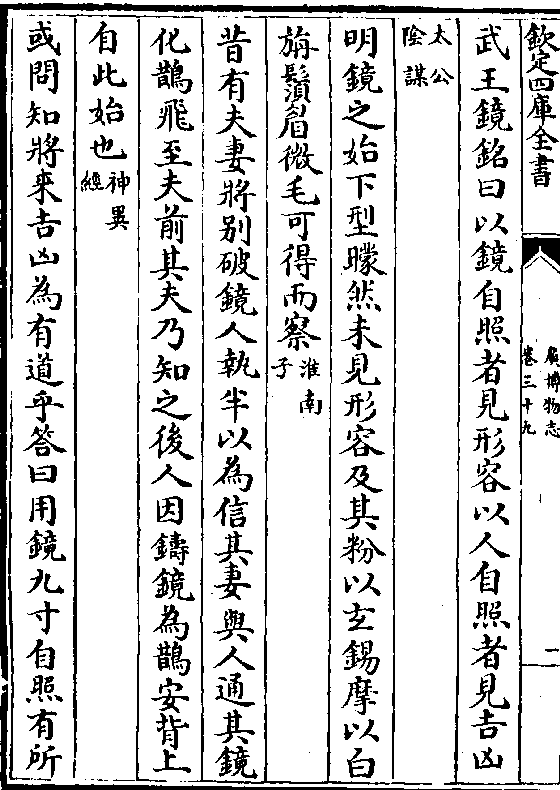 欽定四庫全書
廣博物志
卷三十九
二
武王鏡銘曰以鏡自照者見形容以人自照者見吉凶
太公
陰謀
明鏡之始下型矇然未見形容及其粉以玄錫摩以白
旃鬚眉微毛可得而察淮南
子
昔有夫妻將别破鏡人執半以為信其妻與人通其鏡
化鵲飛至夫前其夫乃知之後人因鑄鏡為鵲安背上
自此始也神異
經
或問知將來吉凶為有道乎答曰用鏡九寸自照有所